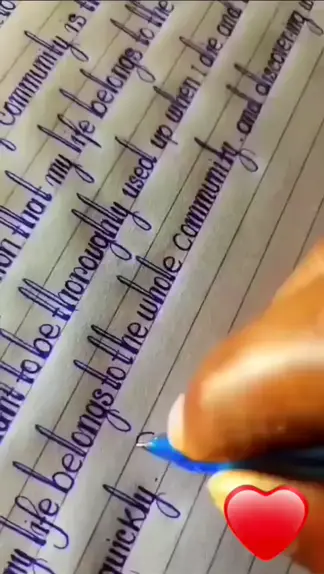 Community is t
on that my life belongs to the
ant to be thoroughly used up when i die and
my life belongs to the whole Community and discovering w
quickly